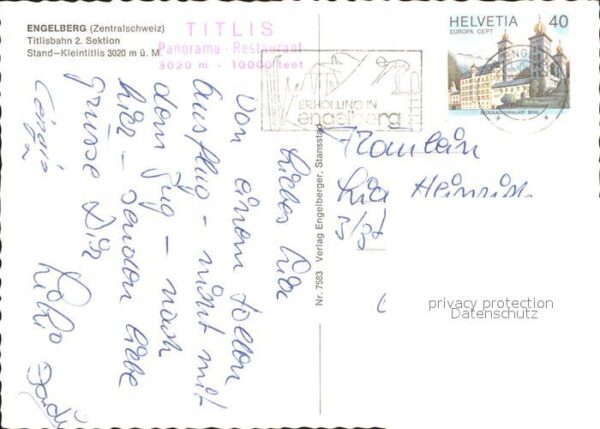 ENGELBERG (Zentralschweiz)
Titlisbahn 2. Sektion
Stand–Kleintitlis 3020 m ü. M.
TITLIS
Panorama - Restaurant
3020 m - 10000 feet
ERHOLUNG IN
engelberg
HELVETIA 40
EUROPA CEPT
Liebes
Von einem tollen
Ausflug - nicht mit
dem Zug - nach
hier - senden liebe
Grüsse Dir
Fräulein
Heinrich
z/zt
Nr. 7583 Verlag Engelberger, Stansstad
privacy protection
Datenschutz